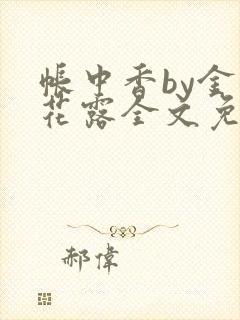 帳中香by金
花露全文免
郝偉